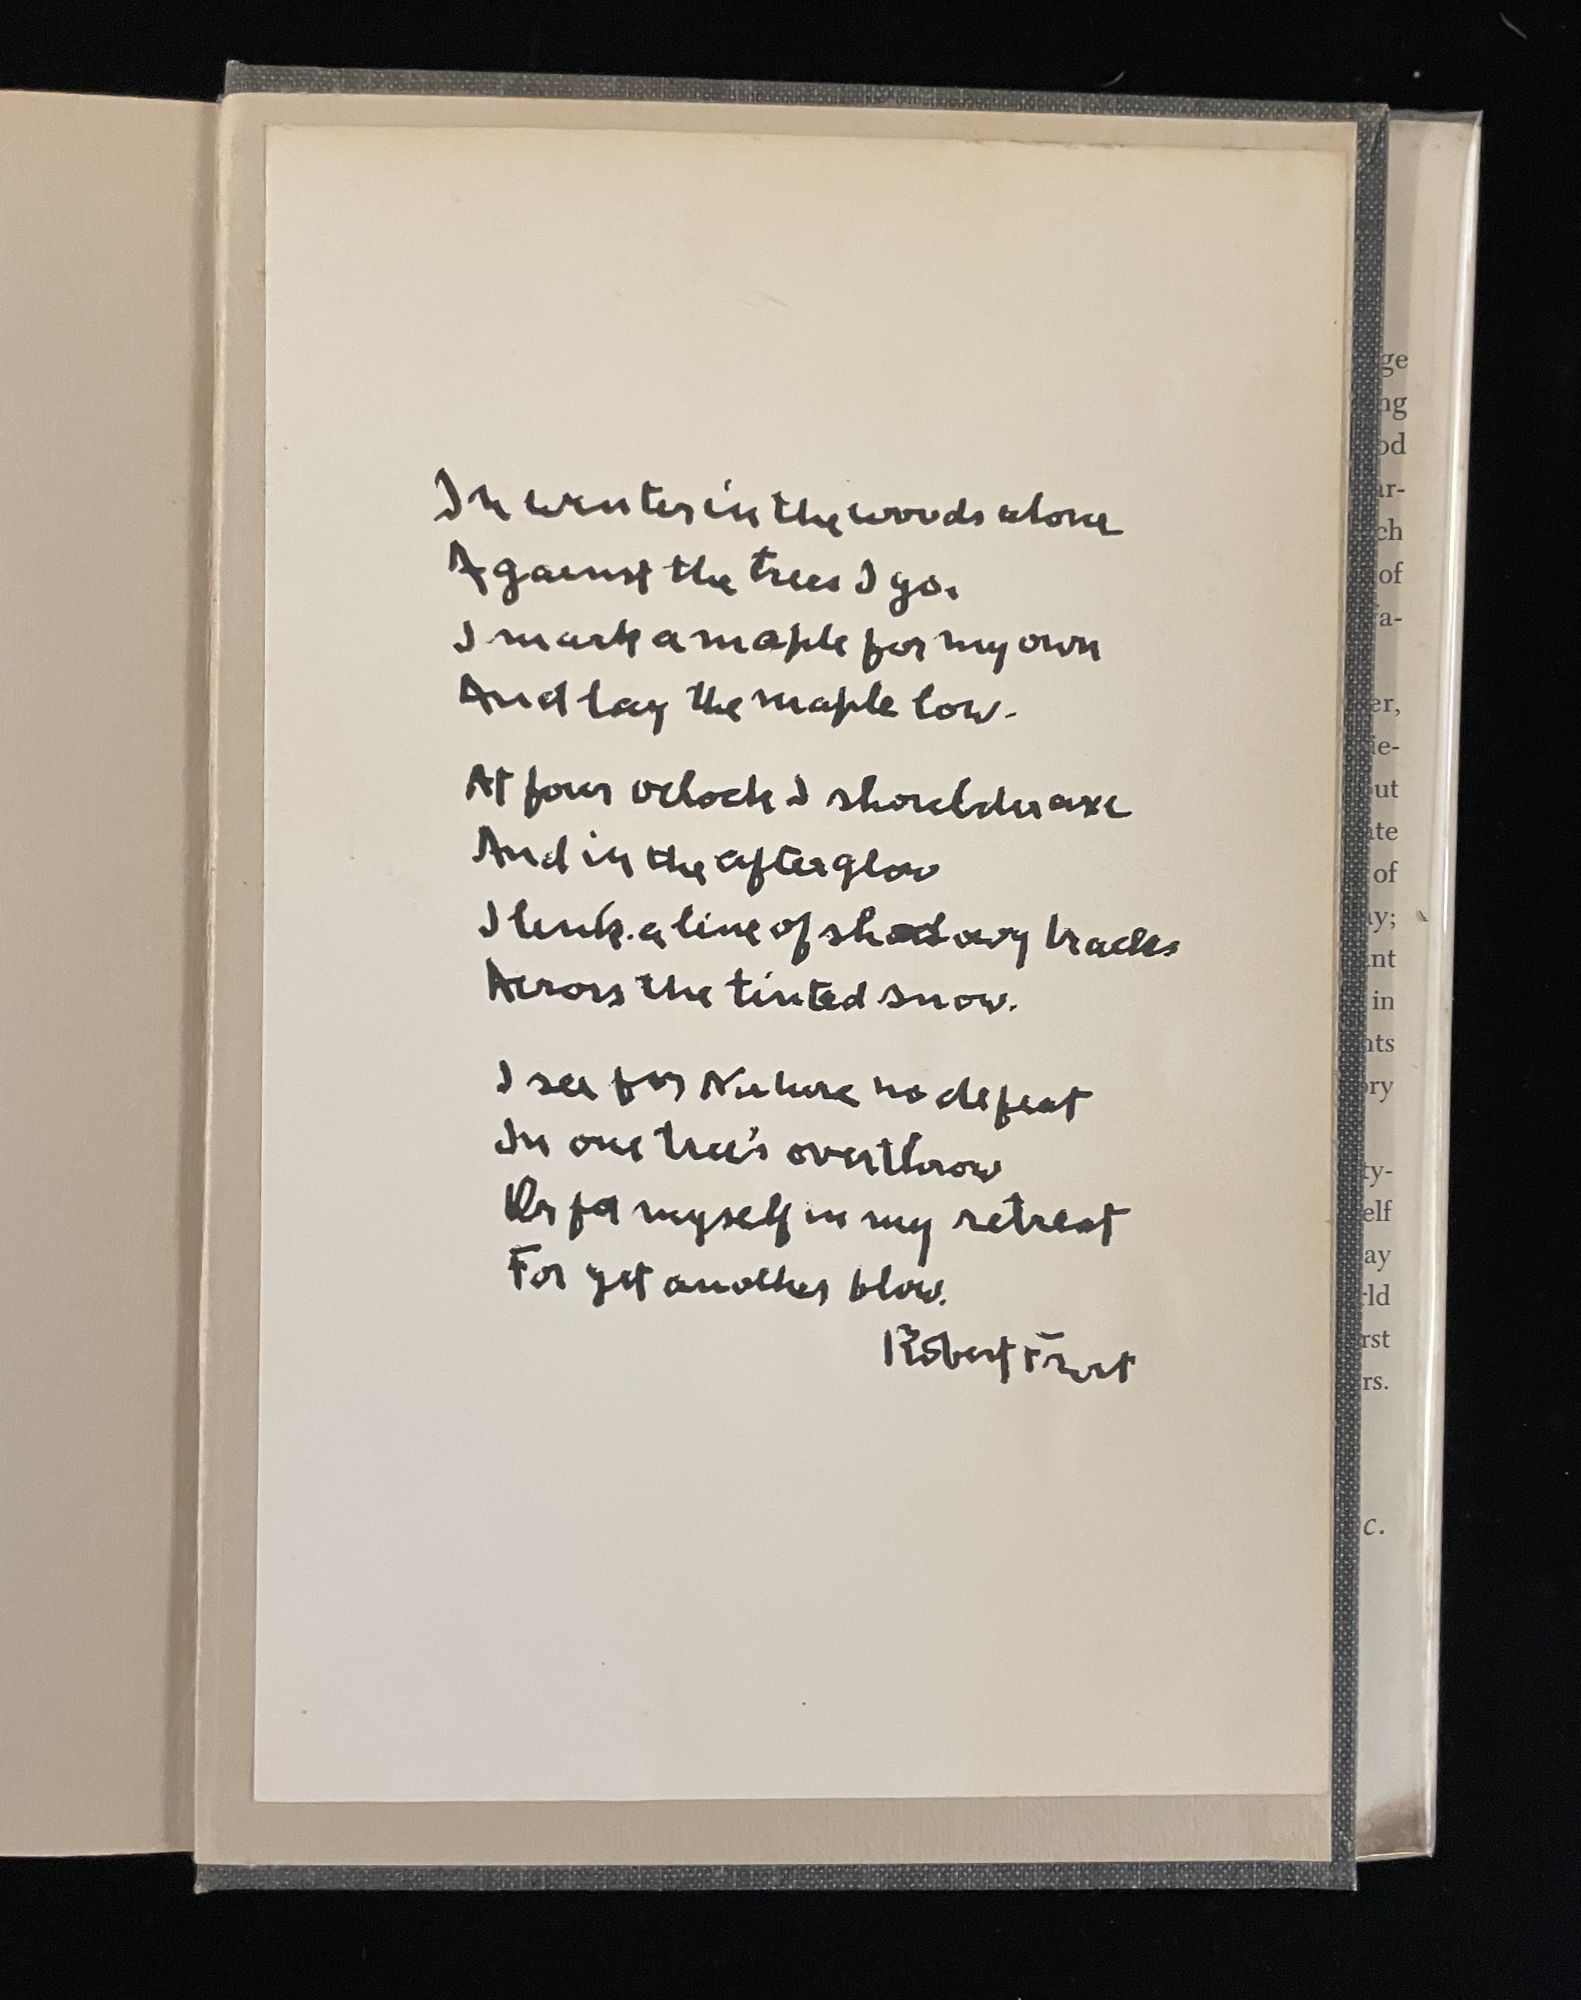 In winter in the woods alone
Against the trees I go.
I mark a maple for my own
And lay the maple low.
At four oclock I shoulder axe
And in the afterglow
I link a line of shadowy tracks
Across the tinted snow.
I see for Nature no defeat
In one tree's overthrow
Or for myself in my retreat
For yet another blow.
Robert Frost
ge
ng
od
ar-
ch
of
a-
er,
ie-
out
ate
of
ay;
ant
in
nts
ory
ty-
elf
ay
rld
rst
rs.
c.